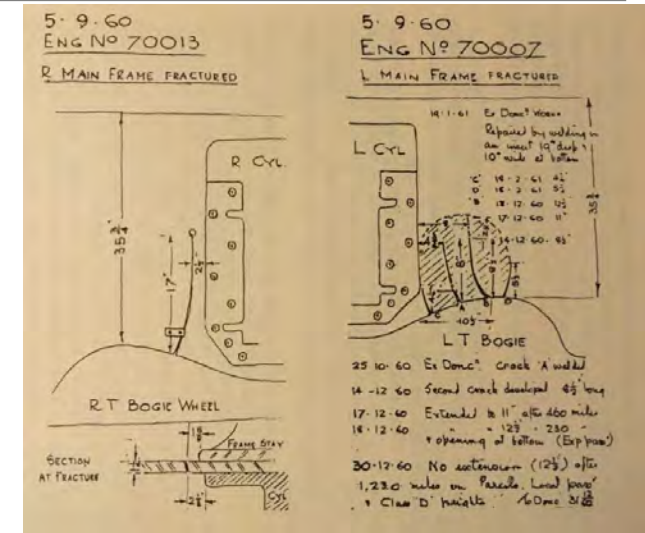 5·9·60
ENG Nº 70013
R MAIN FRAME FRACTURED
R CYL.
35 3/4"
17"
R T BOGIE WHEEL
FRAME STAY
SECTION
AT FRACTURE
CYL
5·9·60
ENG Nº 70007
L MAIN FRAME FRACTURED
19·1·61 Ex Doncr Works
Repaired by welding in
an insert 19" deep
10" wide at bottom
L CYL
'C' 14-2-61
'D' 16-2-61
'B' 18-12-60 12½"
17-12-60 11"
14-12-60
8"
10½"
LT BOGIE
25 10·60 Ex Doncr Crack 'A' welded
14-12-60 Second crack developed long
17·12·60 Extended to 11" after 460 miles
18·12·60 " " 12½ " 230 "
opening at bottom (Exp pass)
30·12·60 No extension (12½) after
1,230 miles on Parcels, Local pass
Class 'D' freights